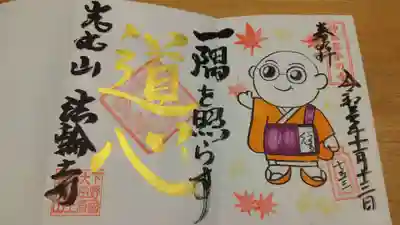 奉拝
令和元年十一月十二日
一隅を照らす
道心
光丸山 法輪寺